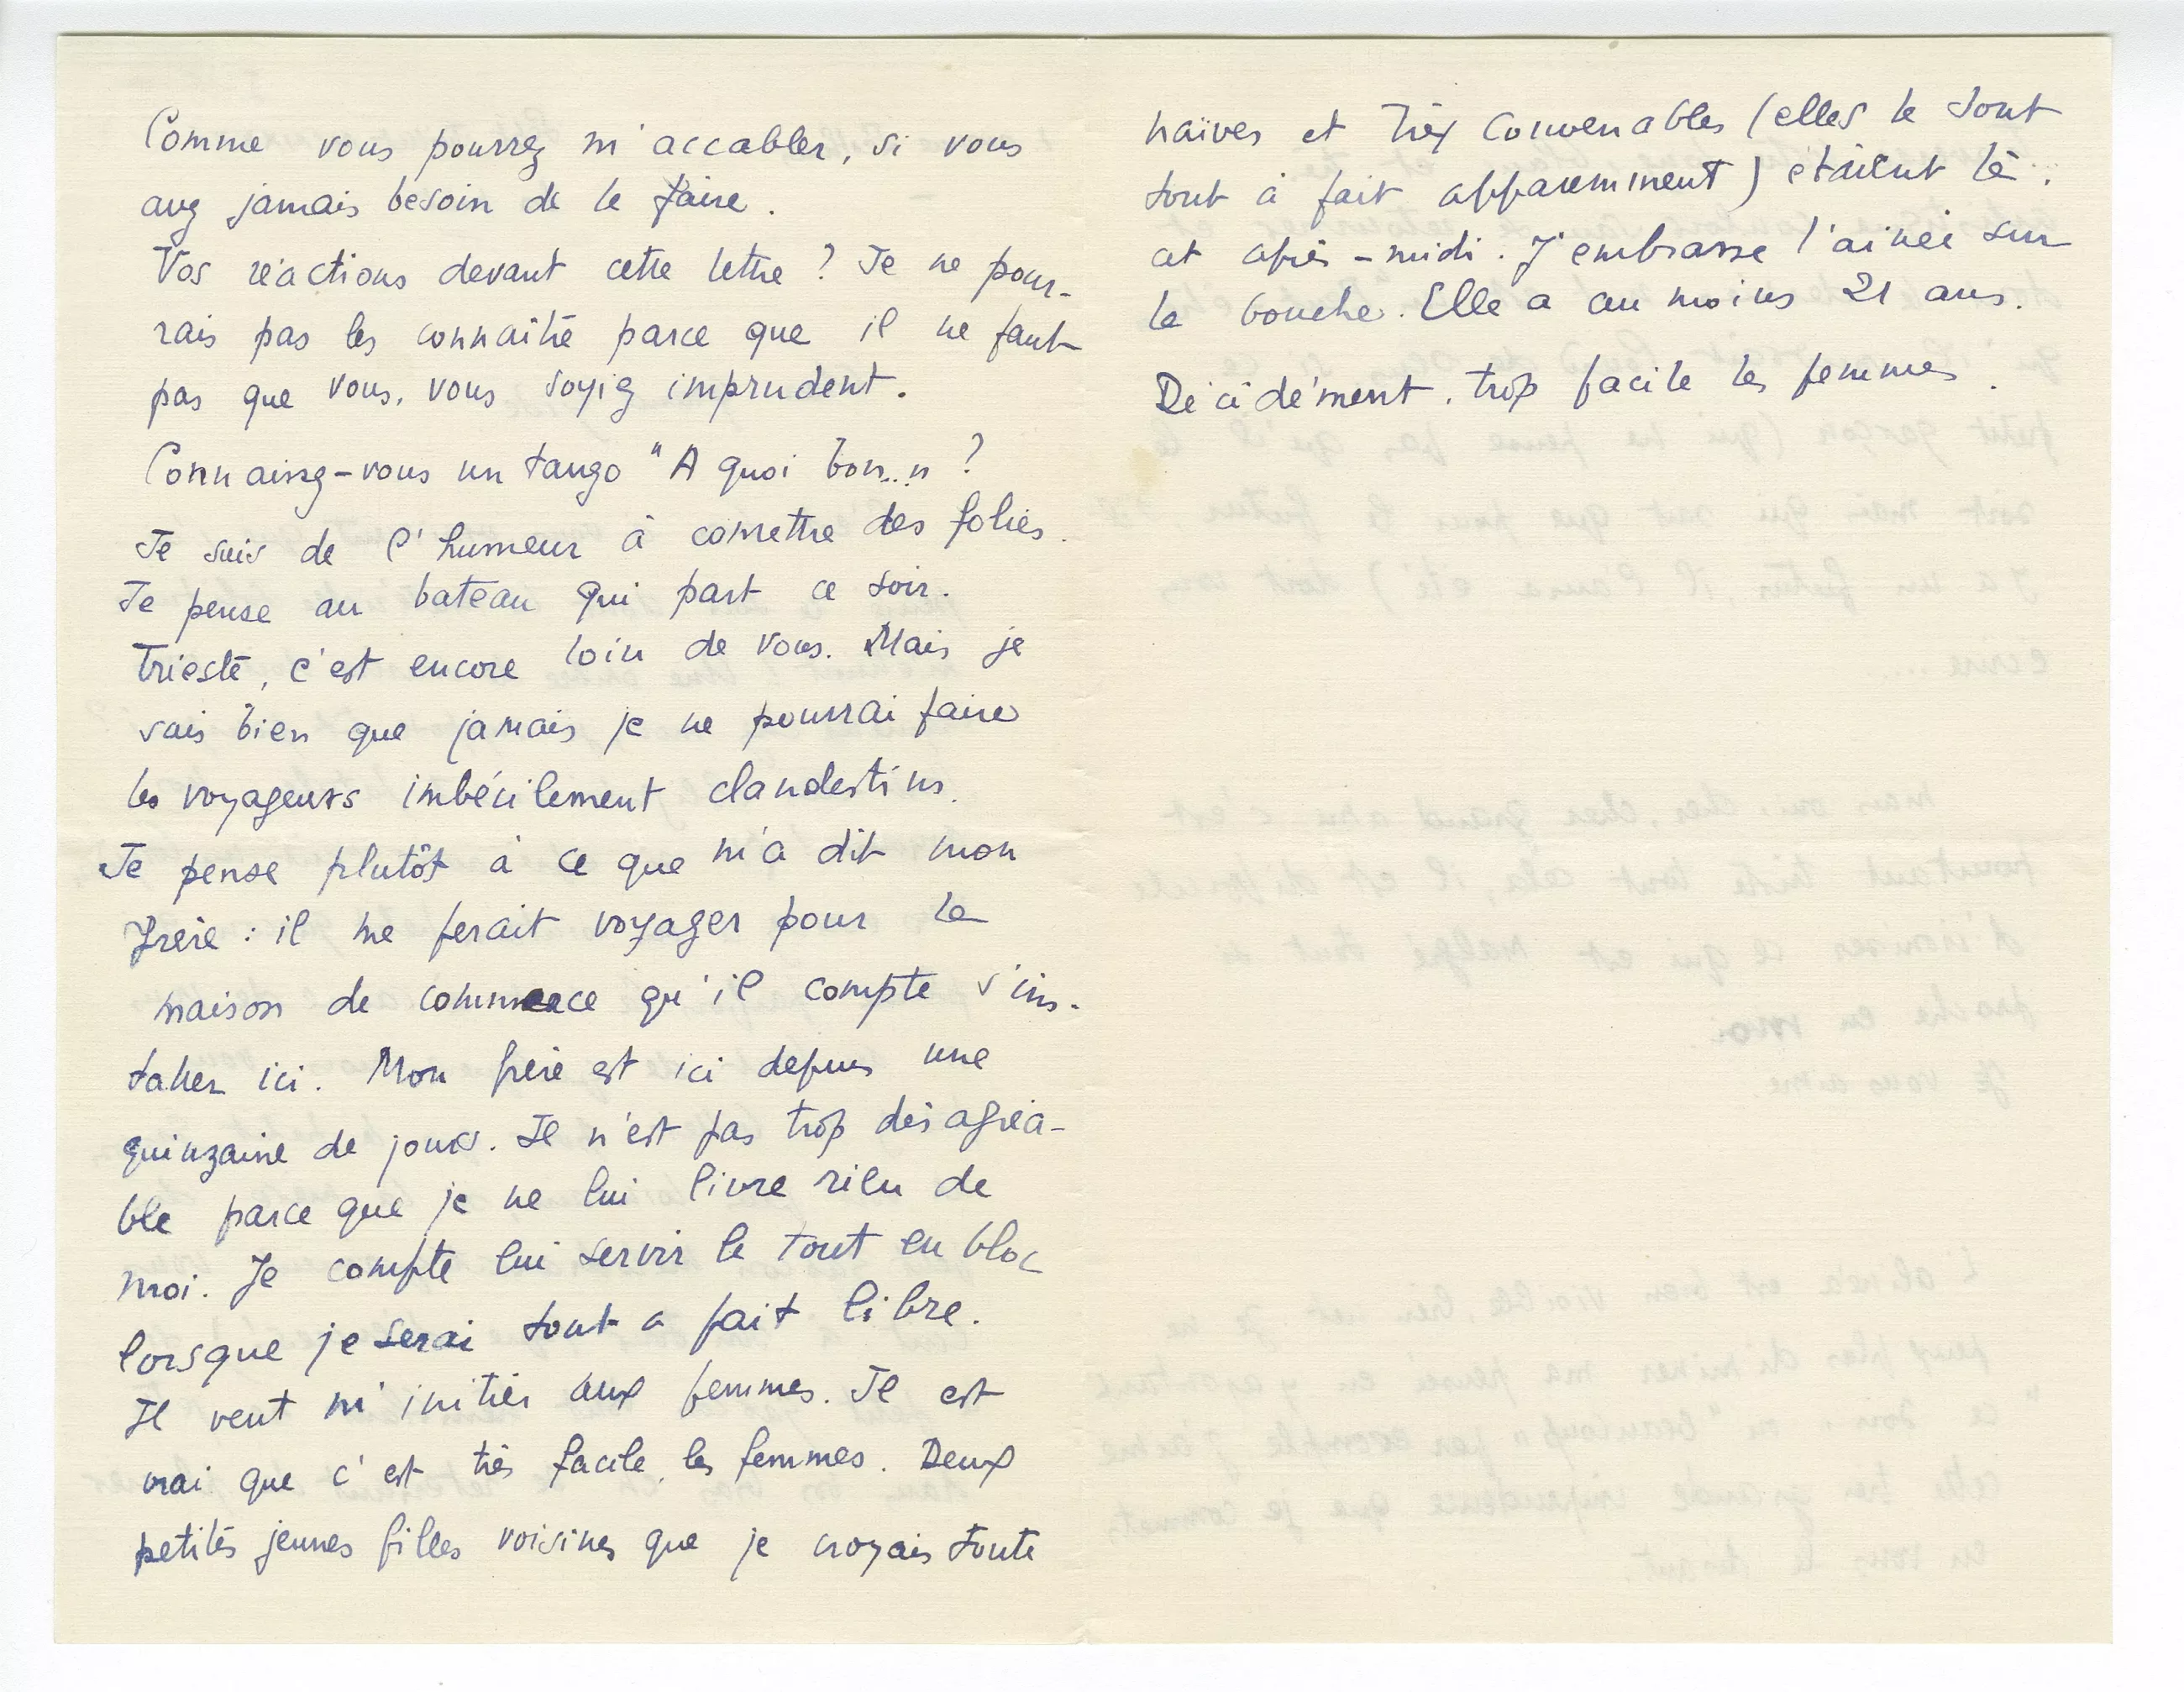 Comme vous pourrez m'accabler, si vous
avez jamais besoin de le faire.
Vos réactions devant cette lettre ? Je ne pour-
rais pas les connaître parce que il ne faut
pas que vous, vous soyiez imprudent.
Connaissez-vous un tango "A quoi bon..." ?
Je suis de l'humeur à comettre des folies.
Je pense au bateau qui part ce soir.
Trieste, c'est encore loin de vous. Mais je
sais bien que jamais je ne pourrai faire
les voyageurs imbécilement clandestins.
Je pense plutôt à ce que m'a dit mon
frère : il me ferait voyager pour la
maison de commerce qu'il compte s'ins-
taller ici. Mon frère est ici depuis une
quinzaine de jours. Il n'est pas trop désagréa-
ble parce que je ne lui livre rien de
moi. Je compte lui servir le tout en bloc
lorsque je serai tout a fait libre.
Il veut m'initier aux femmes. Il est
vrai que c'est très facile, les femmes. Deux
petites jeunes filles voisines que je croyais toute
naïves et très convenables (elles le sont
tout à fait apparemment) étaient là.
cet après-midi. J'embrasse l'ainée sur
la bouche. Elle a au moins 21 ans.
Décidément, trop facile les femmes.